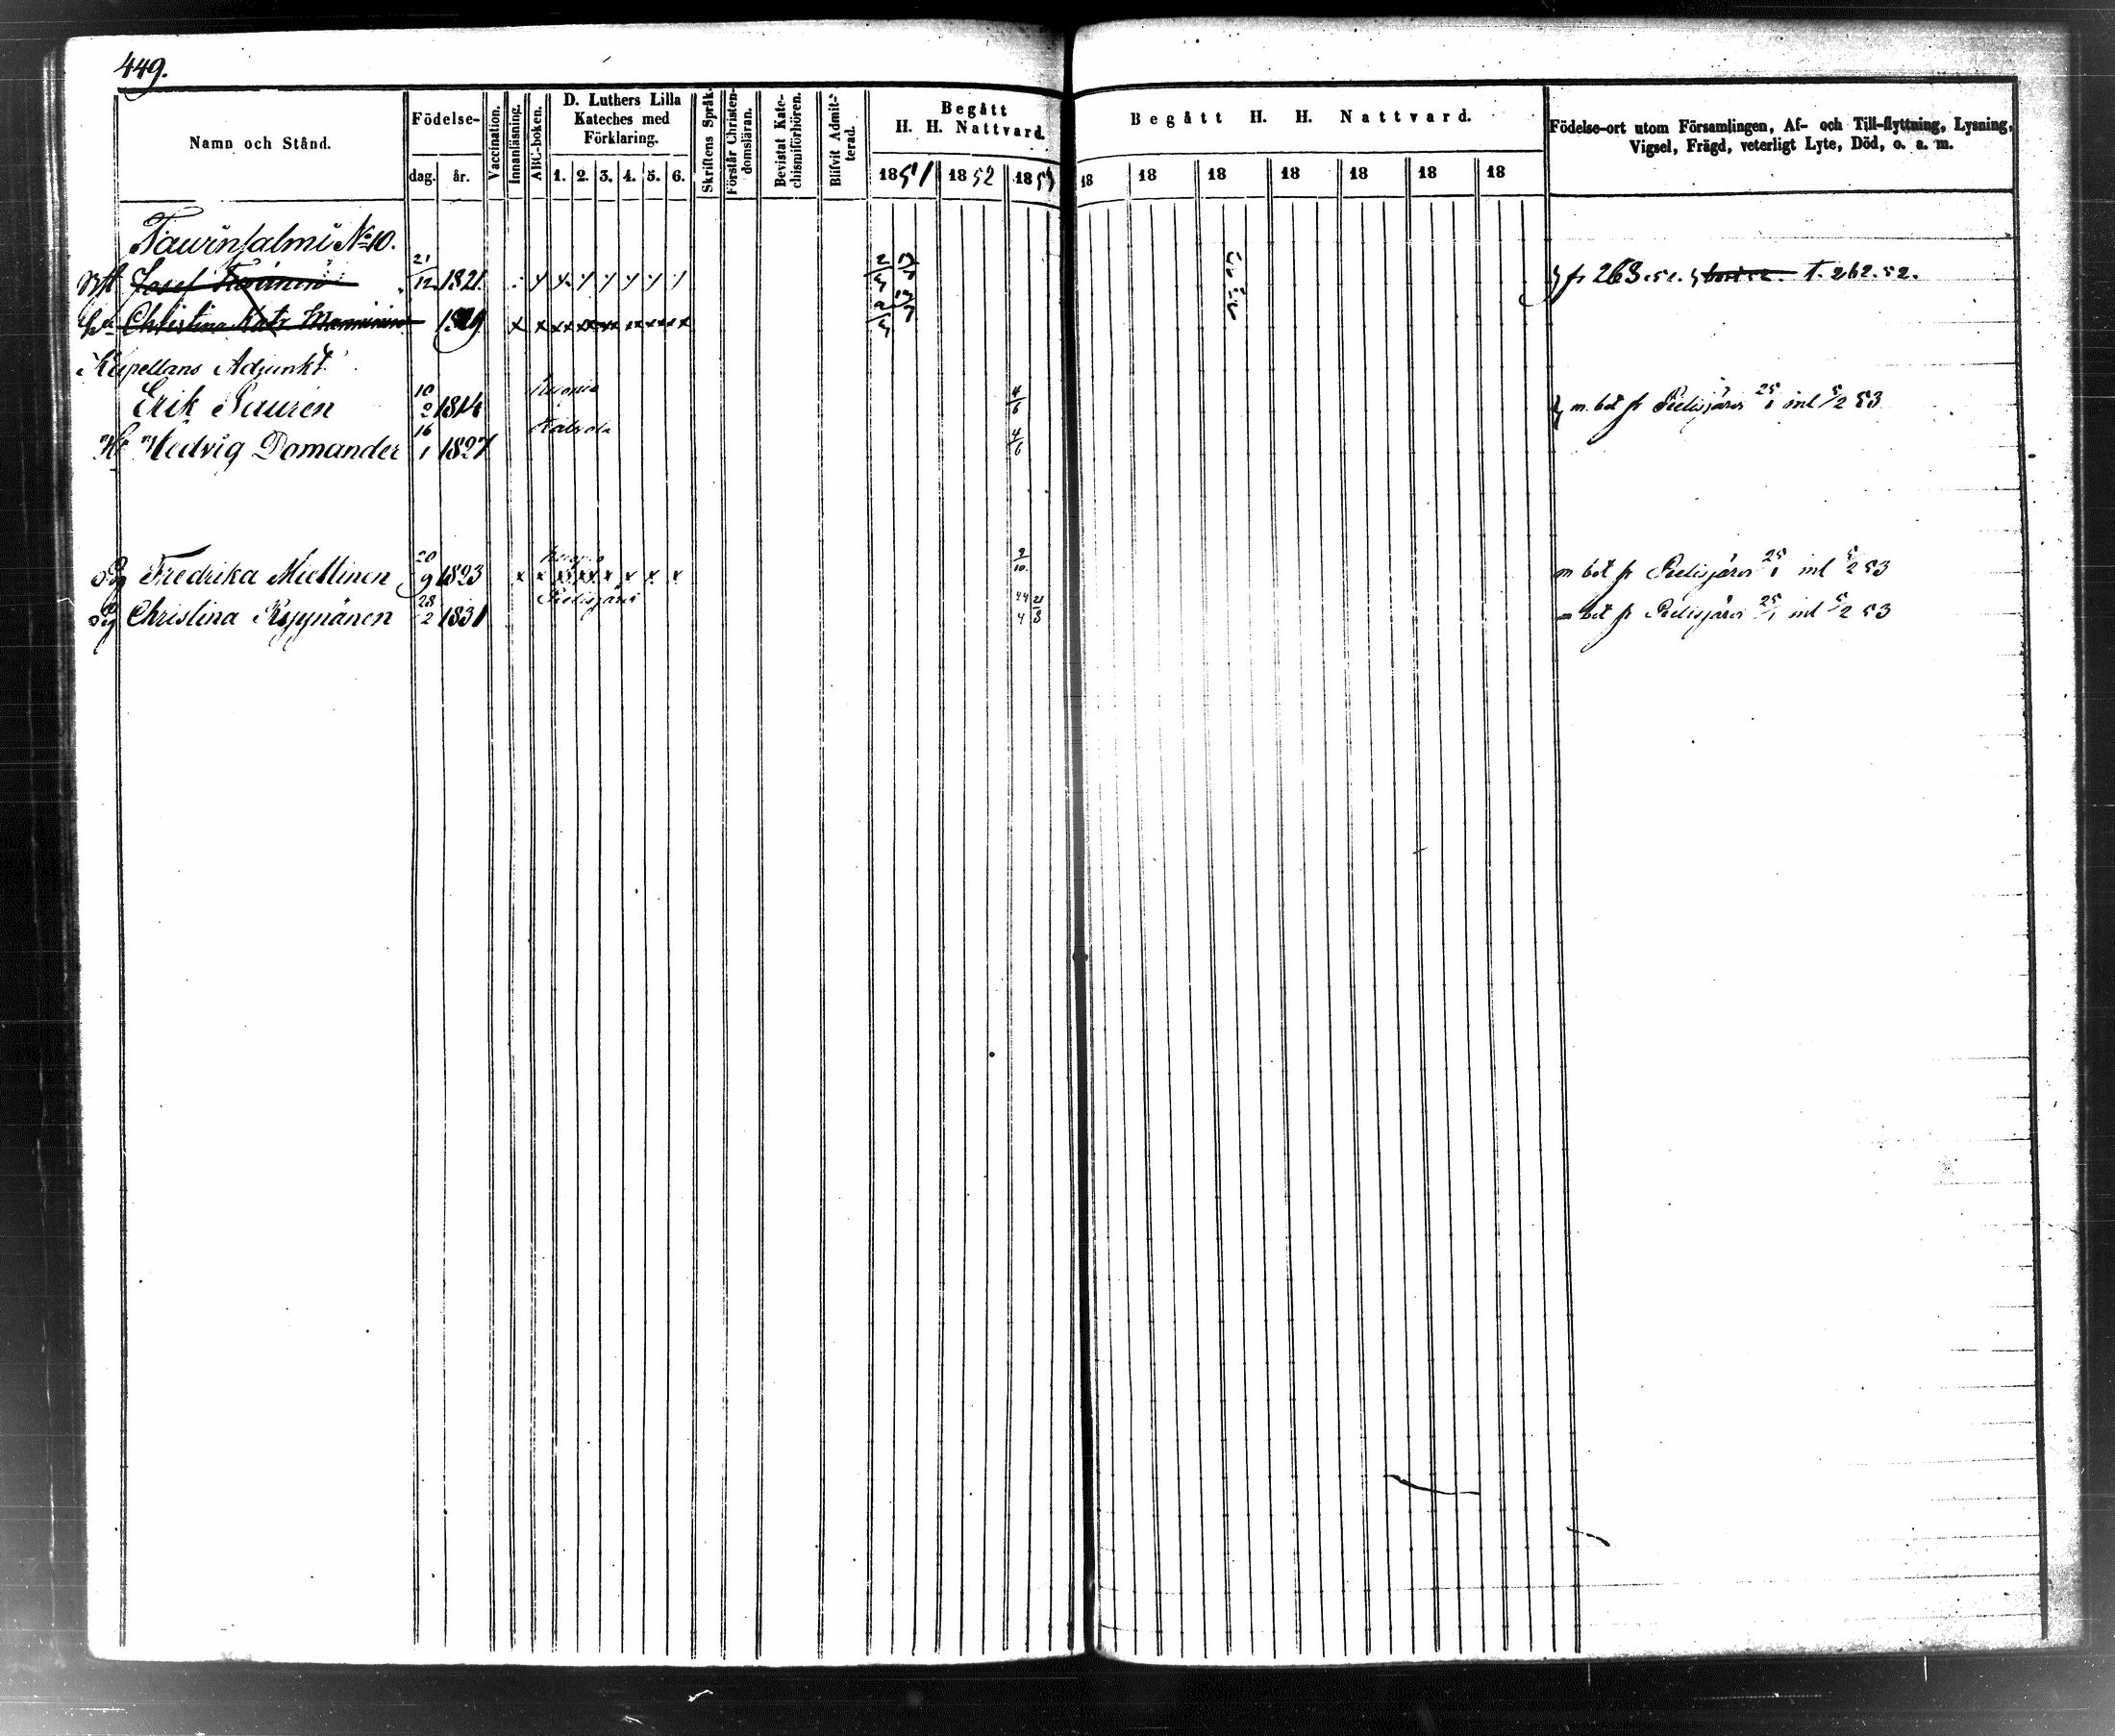 449.
Namn och Stånd.
Födelse-
dag. år.
Vaccination.
Innanläsning.
ABC-boken.
D. Luthers Lilla
Kateches med
Förklaring.
1. 2. 3. 4. 5. 6.
Skriftens Språk.
Förstår Christen-
domsläran.
Bevistat Kate-
chismiförhören.
Blifvit Admit-
terad.
Begått
H. H. Nattvard.
1851 1852 1853
Begått H. H. Nattvard.
18 18 18 18 18 18 18
Födelse-ort utom Församlingen, Af- och Till-flyttning, Lysning,
Vigsel, Frägd, veterligt Lyte, Död, o. a. m.
Taurinsalmi No 10.
Josef 21/12 1821 fr 268. 52. t. 262. 52.
Christina Katr Manninen
Kapellans Adjunkt
Erik Sauren 10/2 1814 Kuopio 4/6 m. bet fr Pielisjärvi 25/1 inl 5/2 53
Hu Hedvig Domander 16/1 1827 4/6
Pig Fredrika Miettinen 20/9 1823 x x x x x x x x 2/10 m bet fr Pielisjärvi 25/1 inl 5/2 53
Pig Christina Ryynänen 28/2 1831 Pielisjärvi 24/4 21/8 m bet fr Pielisjärvi 25/1 inl 5/2 53